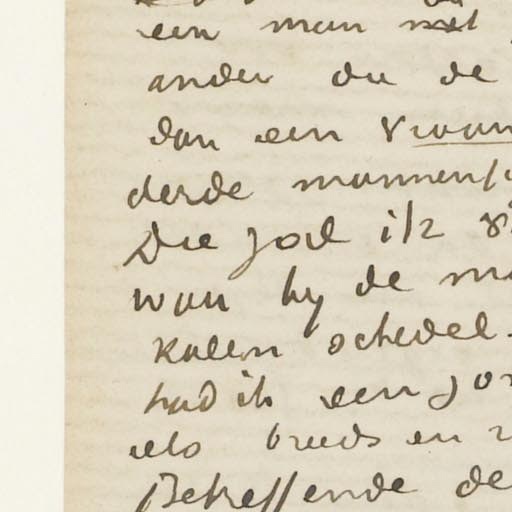 een man met
ander die de
dan een vrouw
derde mannen
Die zal ik
wan hy de
kalen schedel.
had ik een
iets breeds en
Betreffende de